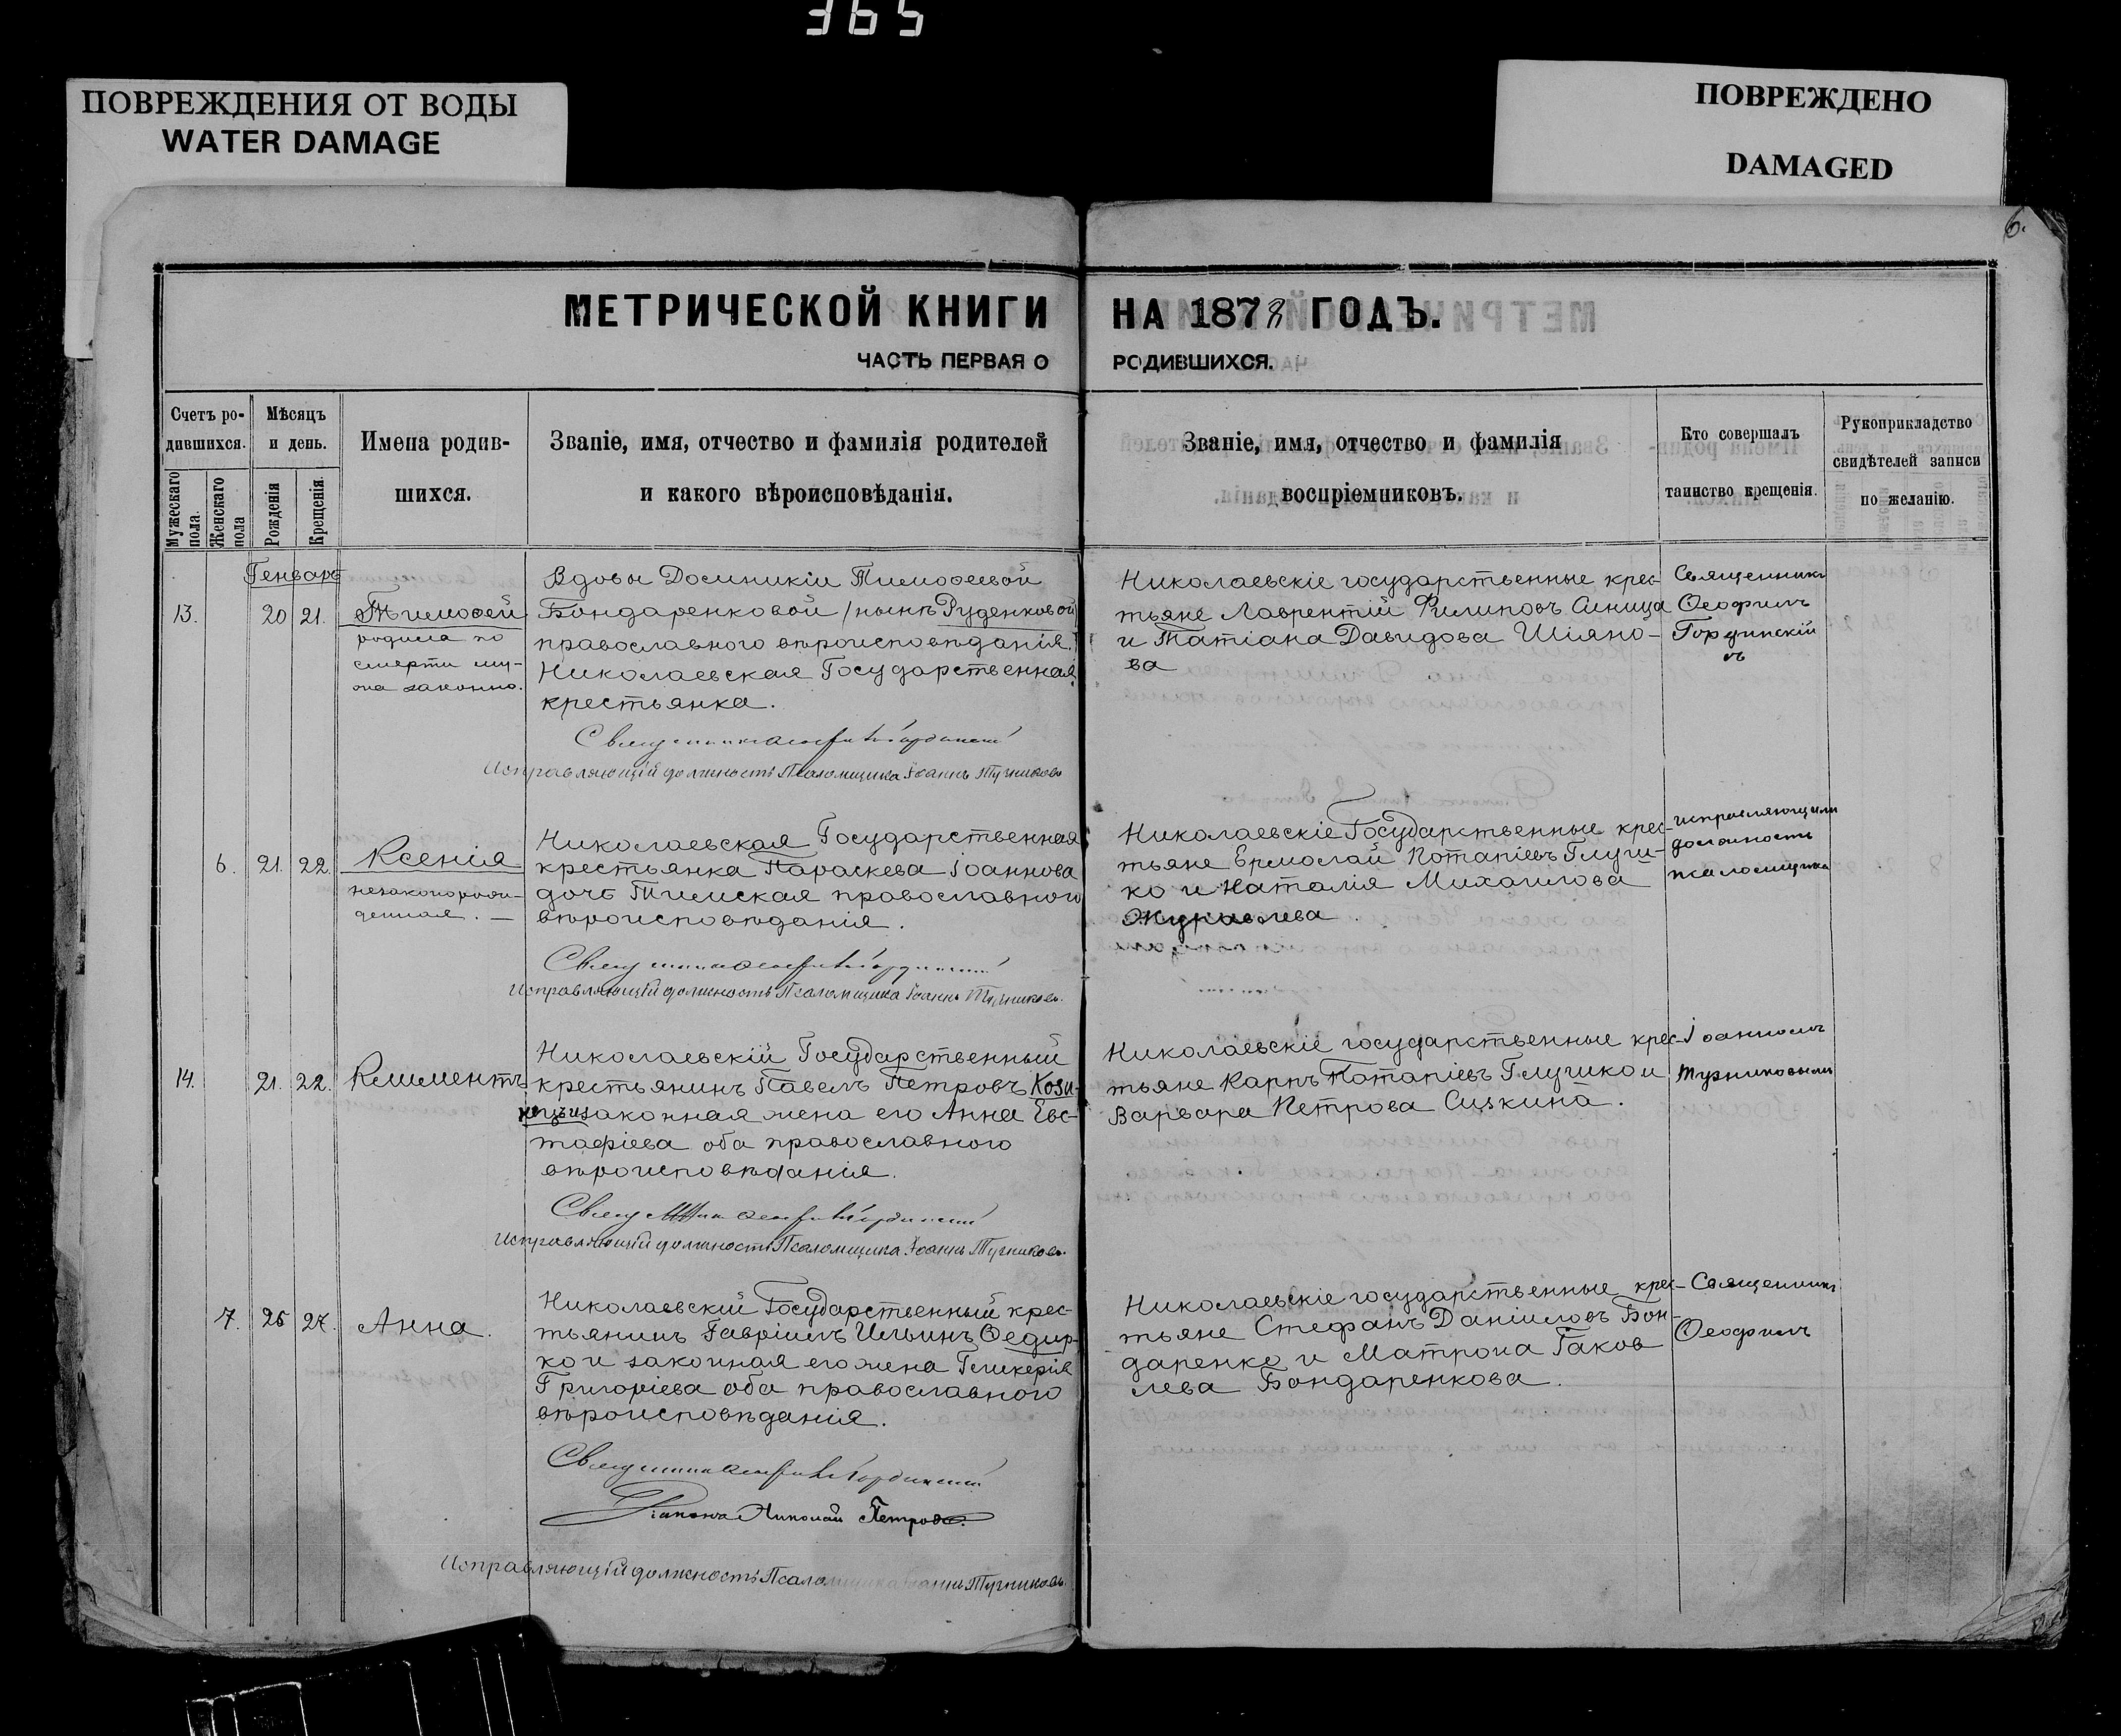 365
ПОВРЕЖДЕНИЯ ОТ ВОДЫ
WATER DAMAGE
ПОВРЕЖДЕНО
DAMAGED
6.
МЕТРИЧЕСКОЙ КНИГИ НА 1878 ГОДЪ.
ЧАСТЬ ПЕРВАЯ О РОДИВШИХСЯ.
Счетъ ро-
дившихся.
Мужескаго пола.
Женскаго пола
Мѣсяцъ
и день.
Рожденія
Крещенія.
Имена родив-
шихся.
Званіе, имя, отчество и фамилія родителей
и какого вѣроисповѣданія.
Званіе, имя, отчество и фамилія
воспріемниковъ.
Кто совершалъ
таинство крещенія.
Рукоприкладство
свидѣтелей записи
по желанію.
Генварь
13.
20 21.
Тимофей
родила по
смерти му-
жа законно.
Вдовы Домникіи Тимофеевой
Бондаренковой /нынѣ Руденковой/
православного вѣроисповѣданія.
Николаевская Государственная
крестьянка.
Исправляющій должность Псаломщика Іоаннъ Тучниковъ
Николаевскіе государственные крес-
тьяне Лаврентій Филиповъ Синица
и Татіана Давидова Шіяно-
ва
Священникъ
Ѳеофилъ
6. 21. 22.
Ксенія
незаконорож-
денная. —
Николаевская Государственная
крестьянка Параскева Іоаннова
дочь Тимская православного
вѣроисповѣданія.
Исправляющій должность Псаломщика Іоаннъ Тучниковъ.
Николаевскіе Государственные крес-
тьяне Ермолай Потапіевъ Глуш-
ко и Наталія Михаилова
Журавлева.
должность
псаломщика
14. 21. 22.
Климентъ
Николаевскій Государственный
крестьянинъ Павелъ Петровъ Кози-
законная жена его Анна Евс-
тафіева оба православного
вѣроисповѣданія.
Исправляющій должность Псаломщика Іоаннъ Тучниковъ.
Николаевскіе государственные крес-
тьяне Карпъ Потапіевъ Глушко и
Варвара Петрова Сизкина.
Іоанномъ
7. 26 27.
Анна.
Николаевскій Государственный крес-
тьянинъ Гавріилъ Ильинъ Ѳедир-
ко и законная его жена Гликерія
Григоріева оба православного
вѣроисповѣданія.
Діаконъ Николай Петровъ.
Исправляющій должность Тучниковъ.
Николаевскіе государственные крес-
тьяне Стефанъ Даніиловъ Бон-
даренко и Матрона Іаков
лева Бондаренкова.
Священникъ
Ѳеофилъ